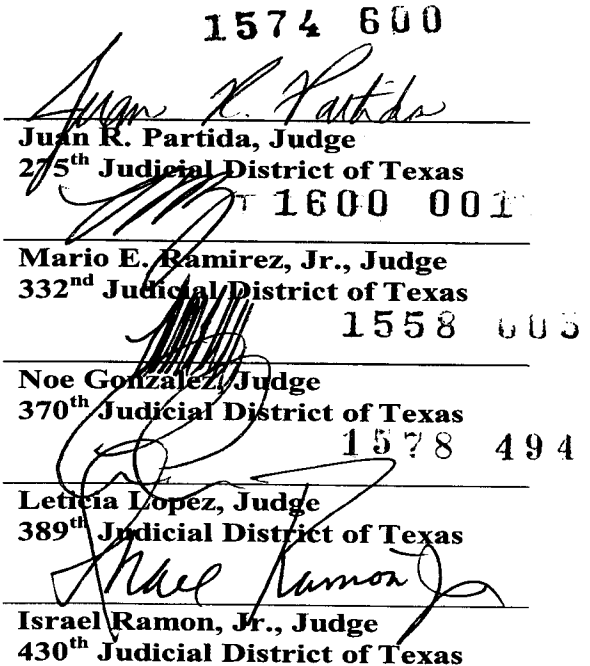 1574 600
Juan R. Partida
Juan R. Partida, Judge
275th Judicial District of Texas
1600 001
Mario E. Ramirez, Jr., Judge
332nd Judicial District of Texas
1558
Noe Gonzalez, Judge
370th Judicial District of Texas
1578 494
Leticia Lopez, Judge
389th Judicial District of Texas
Israel Ramon Jr
Israel Ramon, Jr., Judge
430th Judicial District of Texas